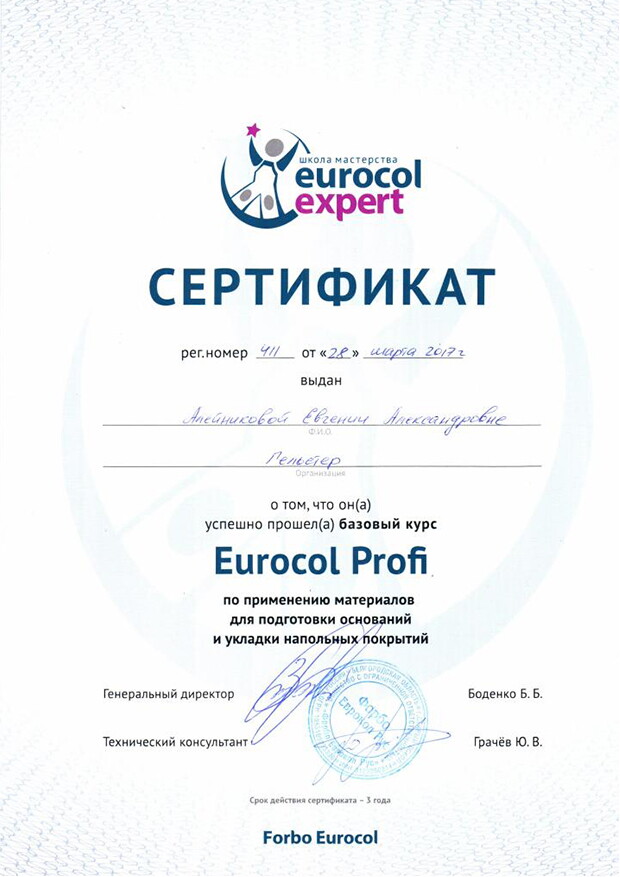 школа мастерства
eurocol
expert
СЕРТИФИКАТ
рег.номер 411 от «28» марта 2017г
выдан
Алейниковой Евгении Александровне
Ф.И.О.
Гельветер
Организация
о том, что он(а)
успешно прошел(а) базовый курс
Eurocol Profi
по применению материалов
для подготовки оснований
и укладки напольных покрытий
Генеральный директор Боденко Б. Б.
Форбо
Еврокол Рус
Технический консультант Грачёв Ю. В.
Срок действия сертификата – 3 года
Forbo Eurocol